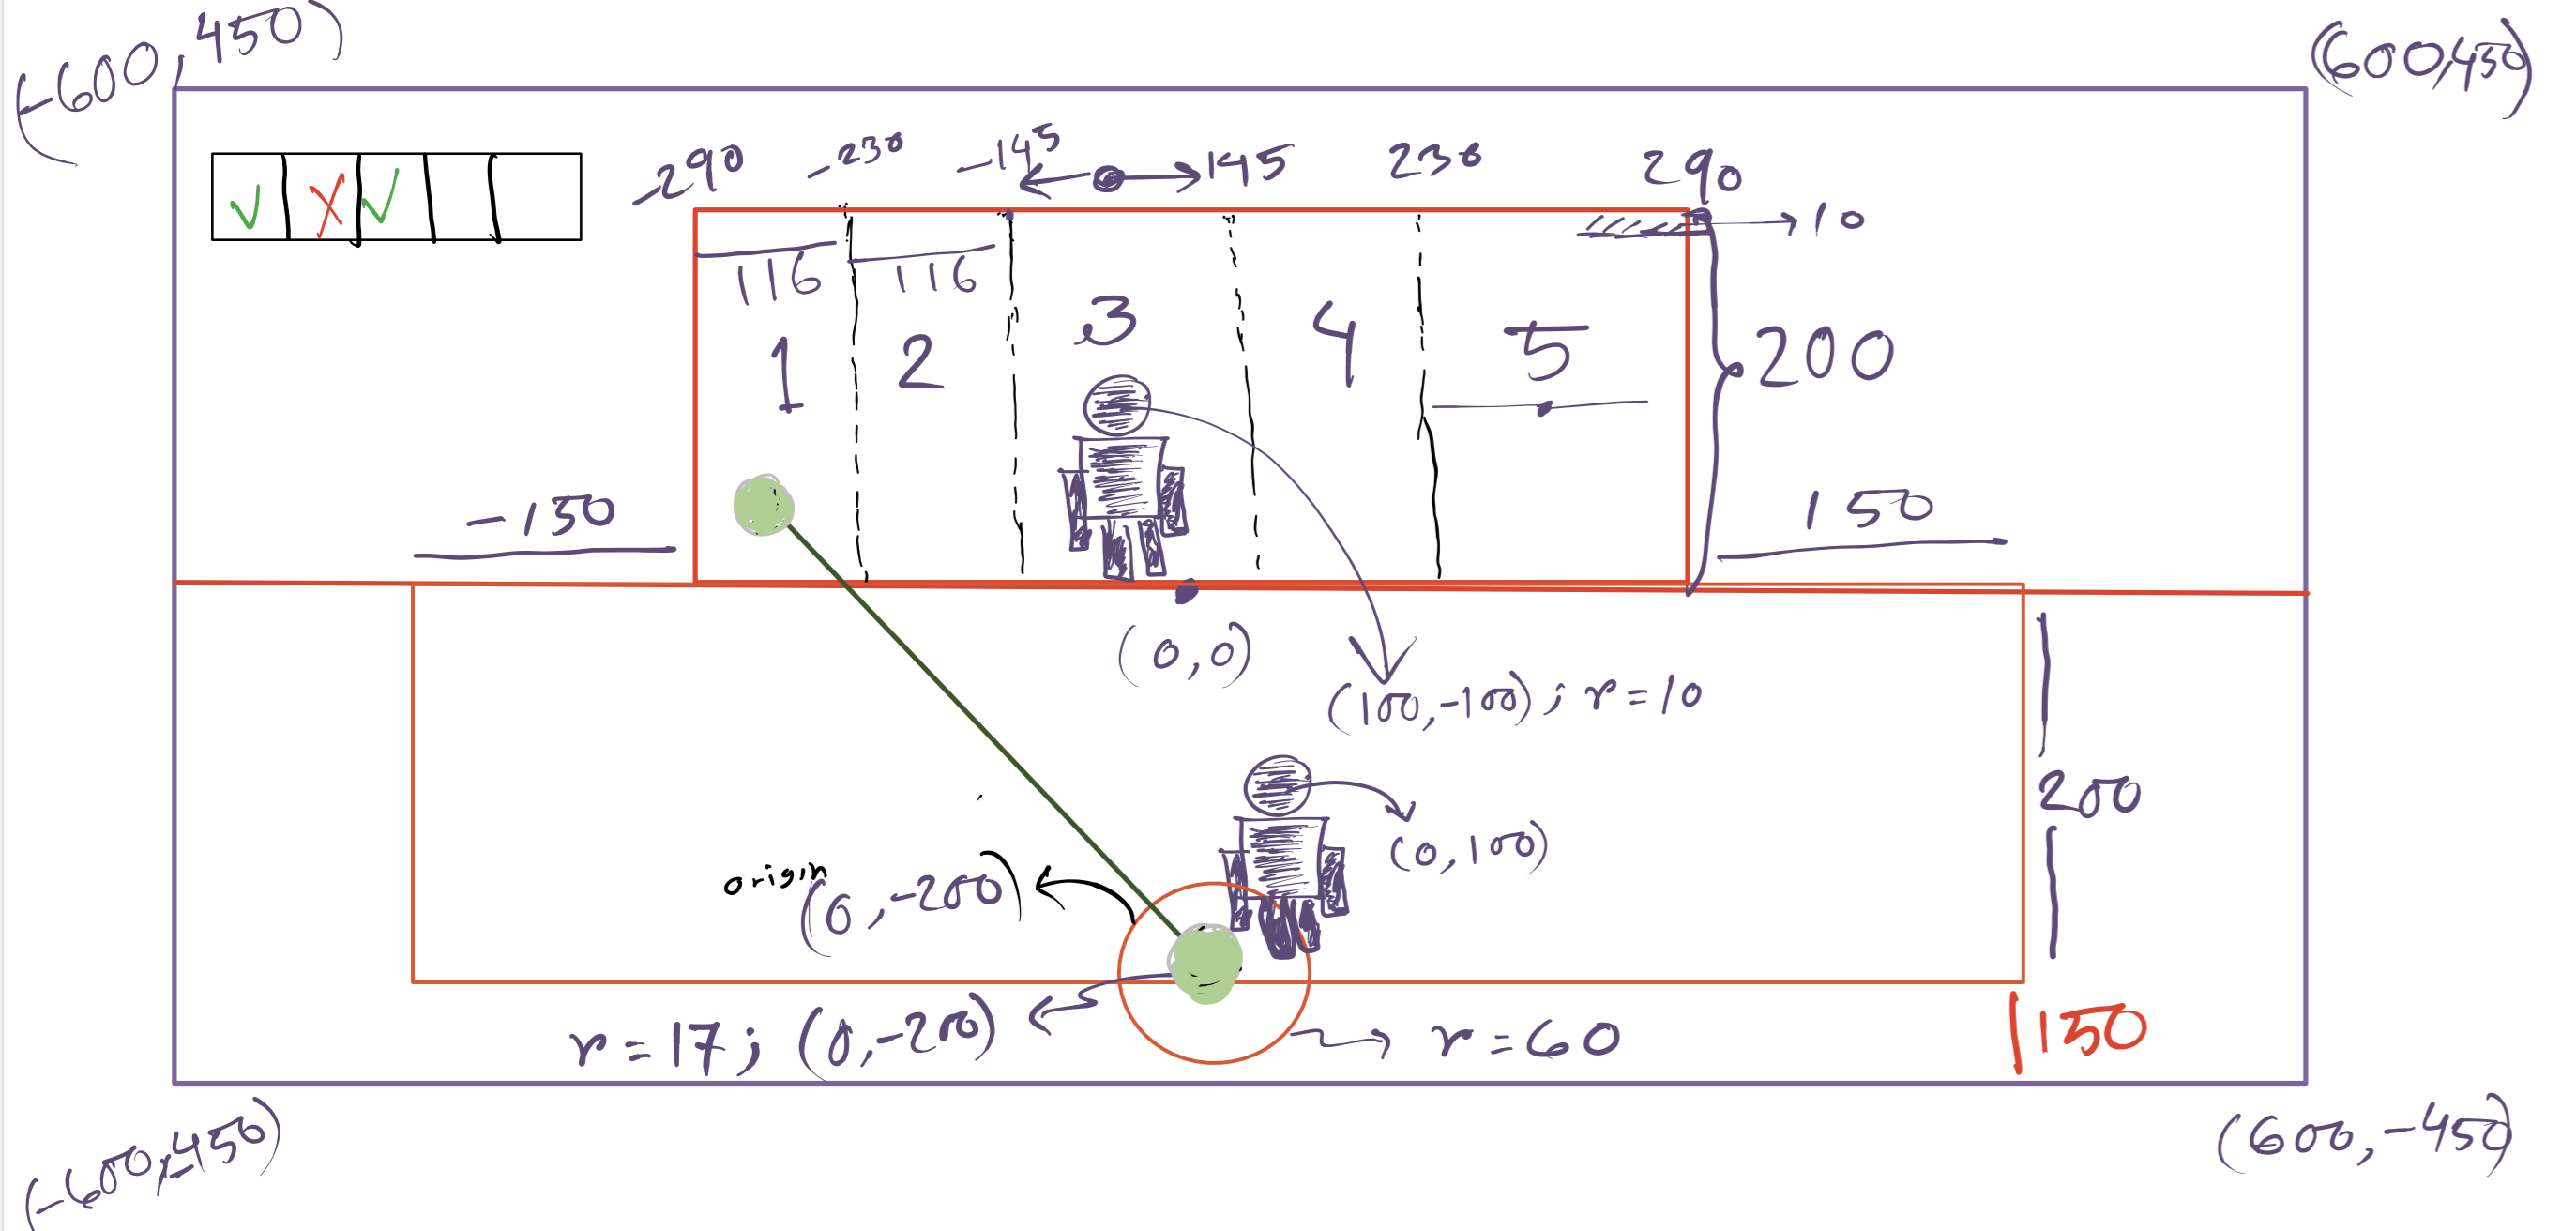 (-600,450)
(600,450)
-290
-230
-145
145
230
290
10
116
116
1
2
3
4
5
200
-150
150
(0,0)
(100,-100); r=10
200
(0,100)
origin
(0,-200)
r=17; (0,-200)
r=60
150
(-600,-450)
(600,-450)